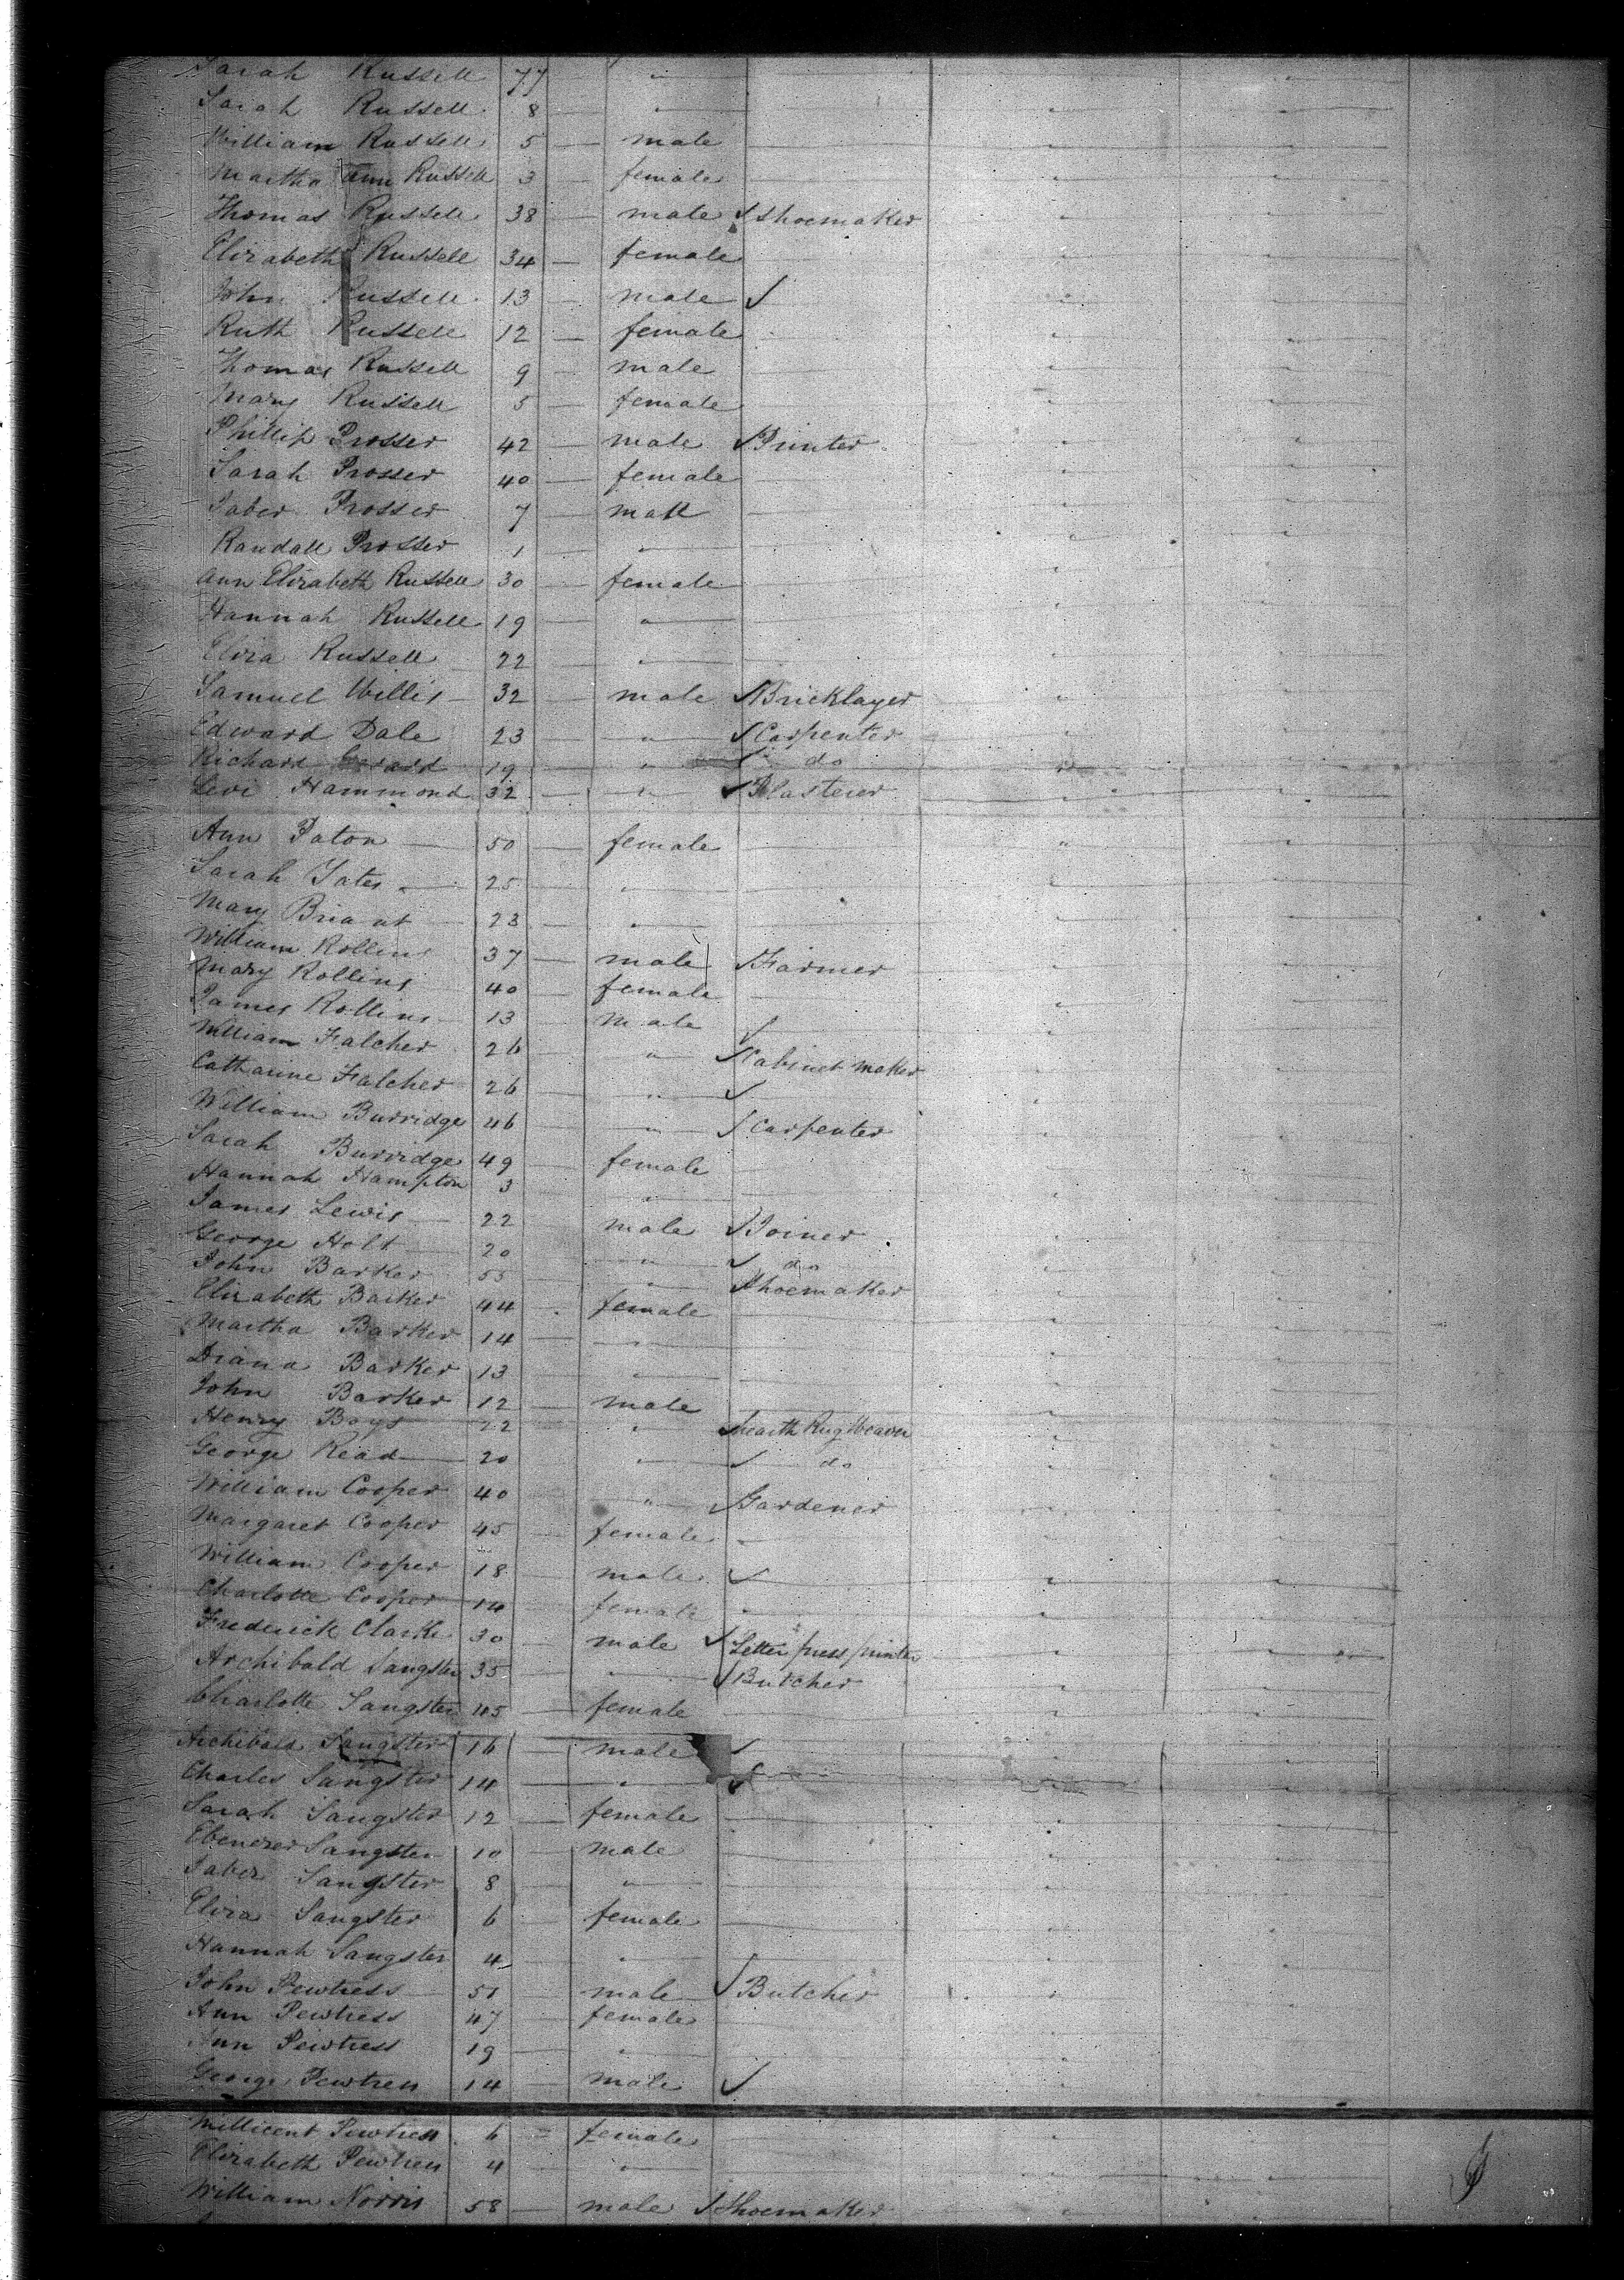 Sarah Russell 77 — " —
Sarah Russell 8 — " —
William Russell 5 — male
Martha Ann Russell 3 — female
Thomas Russell 38 — male ✓ Shoemaker
Elizabeth Russell 34 — female
John Russell 13 — male ✓
Ruth Russell 12 — female
Thomas Russell 9 — male
Mary Russell 5 — female
Phillip Prosser 42 — male ✓ Printer
Sarah Prosser 40 — female
Jaber Prosser 7 — male
Randall Prosser 1 — " —
Ann Elizabeth Russell 30 — female
Hannah Russell 19 — " —
Eliza Russell 22 — " —
Samuel Willis 32 — male ✓ Bricklayer
Edward Dale 23 — " — ✓ Carpenter
Richard 19 — " — ✓ do
Levi Hammond 32 — " — ✓ Plasterer
Ann Paton 50 — female
Sarah Yates 25 — " —
Mary Briant 23 — " —
William Rollins 37 — male ✓ Farmer
Mary Rollins 40 — female
James Rollins 13 — male ✓
William Falcher 26 — " — ✓ Cabinet Maker
Catharine Falcher 26 — " — ✓
William Burridge 46 — " — ✓ Carpenter
Sarah Burridge 49 — female
Hannah Hampton 3 — " —
James Lewis 22 — male ✓ Joiner
George Holt 20 — " — ✓ do
John Barker 55 — " — Shoemaker
Elizabeth Barker 44 — female
Martha Barker 14 — " —
Diana Barker 13 — " —
John Barker 12 — male
Henry Boys 22 — " — ✓ Hearth Rug Weaver
George Read 20 — " — ✓ do
William Cooper 40 — " — ✓ Gardener
Margaret Cooper 45 — female
William Cooper 18 — male ✓
Charlotte Cooper 14 — female
Frederick Clarke 30 — male ✓ Letter press printer
Archibald Sangster 35 — " — ✓ Butcher
Charlotte Sangster 45 — female
Archibald Sangster 16 — male ✓
Charles Sangster 14 — " — ✓
Sarah Sangster 12 — female
Ebenezer Sangster 10 — male
Jaber Sangster 8 — " —
Eliza Sangster 6 — female
Hannah Sangster 4 — " —
John Pewtress 51 — male ✓ Butcher
Ann Pewtress 47 — female
Ann Pewtress 19 — " —
George Pewtress 14 — male ✓
Millicent Pewtress 6 = female
Elizabeth Pewtress 4 — " —
William Norris 58 — male ✓ Shoemaker